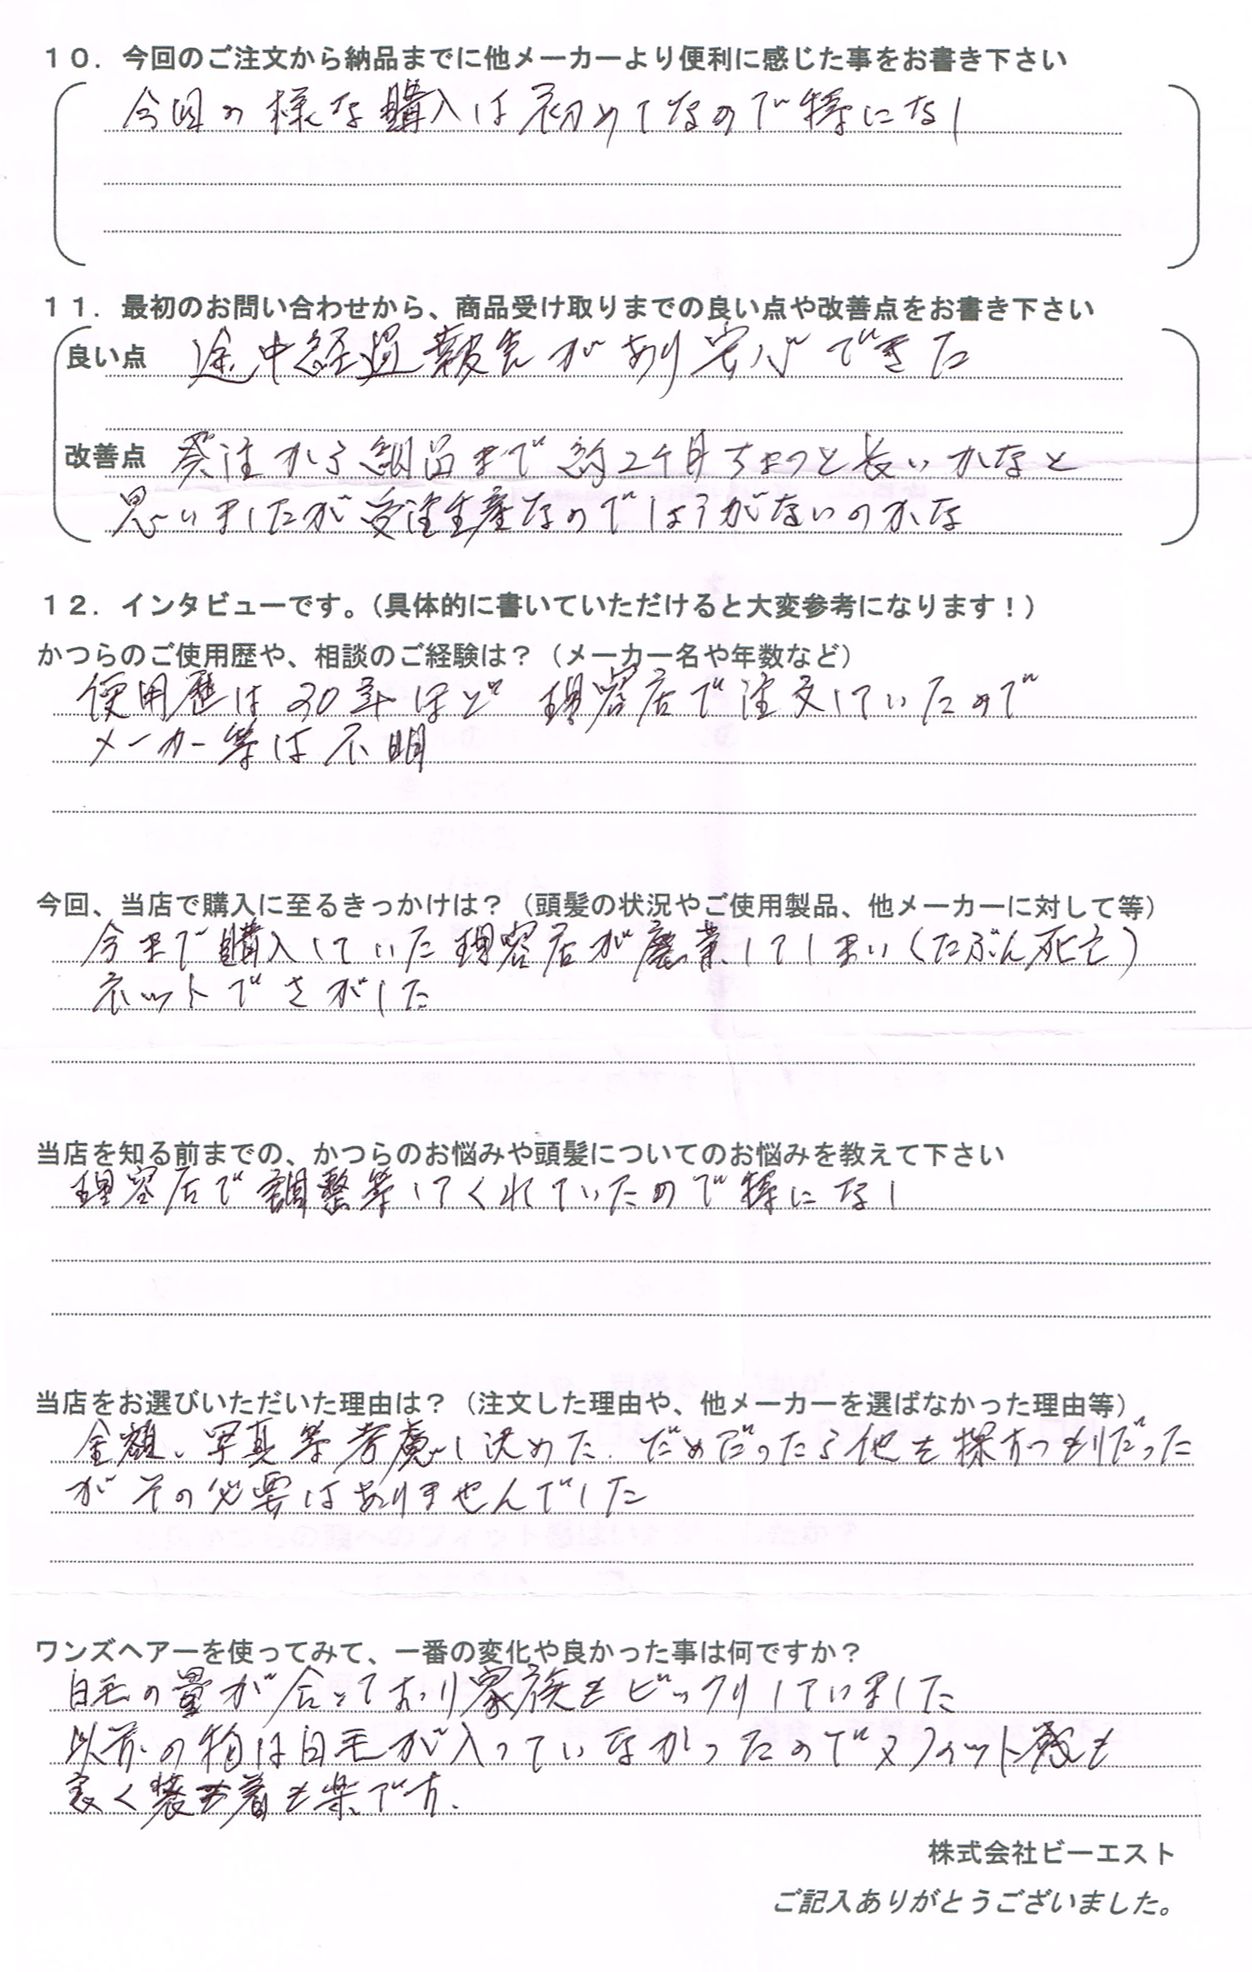 １０．今回のご注文から納品までに他メーカーより便利に感じた事をお書き下さい
今回の様な購入は初めてなので特になし
１１．最初のお問い合わせから、商品受け取りまでの良い点や改善点をお書き下さい
良い点 途中経過報告があり安心できた
改善点 発注から納品まで約2ケ月ちょっと長いかなと
思いましたが受注生産なのでしょうがないのかな
１２．インタビューです。（具体的に書いていただけると大変参考になります！）
かつらのご使用歴や、相談のご経験は？（メーカー名や年数など）
使用歴は30年ほど 理容店で注文していたので
メーカー等は不明
今回、当店で購入に至るきっかけは？（頭髪の状況やご使用製品、他メーカーに対して等）
今まで購入していた理容店が廃業してしまい（たぶん死亡）
ネットでさがした
当店を知る前までの、かつらのお悩みや頭髪についてのお悩みを教えて下さい
理容店で調整等してくれていたので特になし
当店をお選びいただいた理由は？（注文した理由や、他メーカーを選ばなかった理由等）
金額、写真等考慮し決めた．だめだったら他を探すつもりだった
がその必要はありませんでした
ワンズヘアーを使ってみて、一番の変化や良かった事は何ですか？
白毛の量が合っており家族もビックリしていました
以前の物は白毛が入っていなかったので又フィット感も
良く装着も楽です．
株式会社ビーエスト
ご記入ありがとうございました。